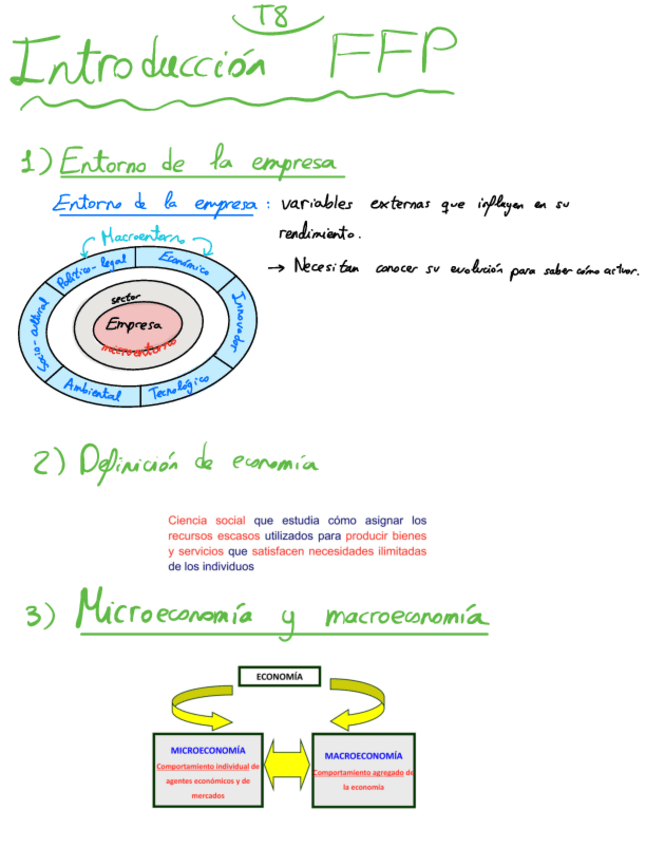 T8
Introducción FFP
1) Entorno de la empresa
Entorno de la empresa: variables externas que influyen en su
rendimiento.
→ Necesitan conocer su evolución para saber cómo actuar.
Macroentorno
Político-legal
Económico
Innovador
Tecnológico
Ambiental
Socio-cultural
sector
Empresa
microentorno
2) Definición de economía
Ciencia social que estudia cómo asignar los
recursos escasos utilizados para producir bienes
y servicios que satisfacen necesidades ilimitadas
de los individuos
3) Microeconomía y macroeconomía
ECONOMÍA
MICROECONOMÍA
Comportamiento individual de
agentes económicos y de
mercados
MACROECONOMÍA
Comportamiento agregado de
la economía